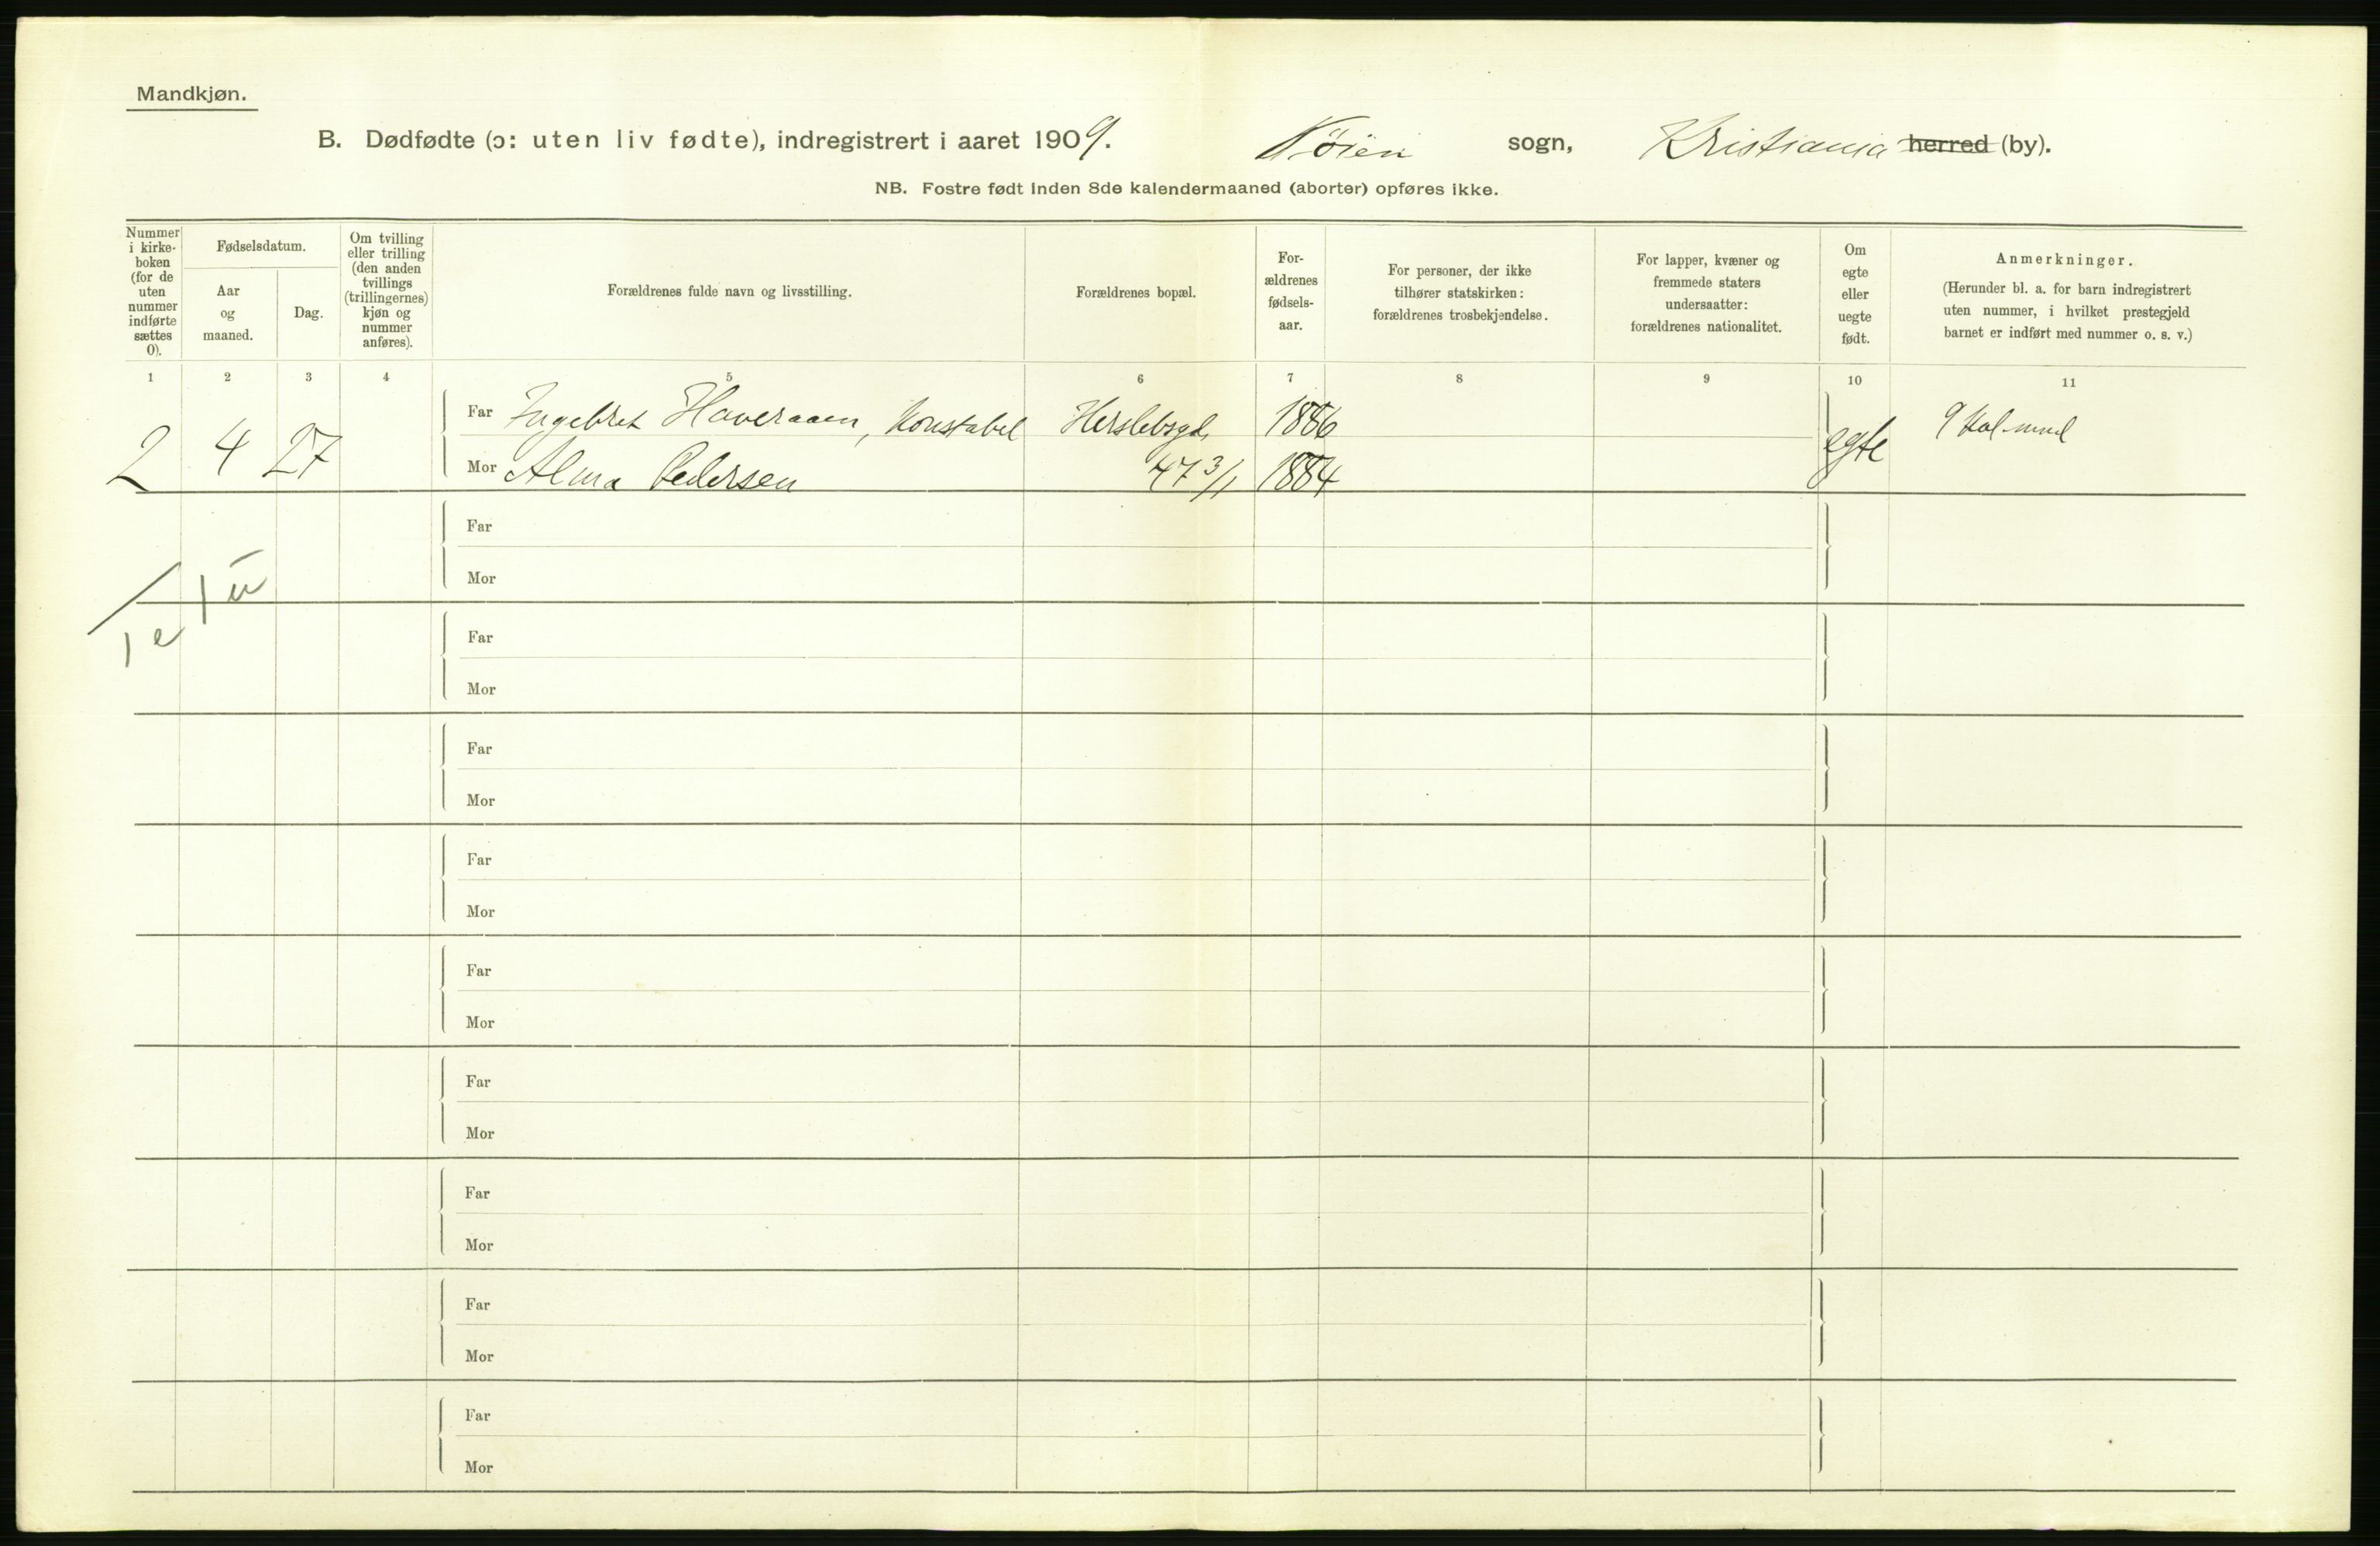 Mandkjøn.
B. Dødfødte (ɔ: uten liv fødte), indregistrert i aaret 1909. Tøien sogn, Kristiania herred (by).
NB. Fostre født inden 8de kalendermaaned (aborter) opføres ikke.
Nummer i kirke-boken (for de uten nummer indførte sættes 0).
Fødselsdatum.
Aar og maaned.
Dag.
Om tvilling eller trilling (den anden tvillings (trillingernes) kjøn og nummer anføres).
Forældrenes fulde navn og livsstilling.
Forældrenes bopæl.
For-ældrenes fødsels-aar.
For personer, der ikke tilhører statskirken: forældrenes trosbekjendelse.
For lapper, kvæner og fremmede staters undersaatter: forældrenes nationalitet.
Om egte eller uegte født.
Anmerkninger.
(Herunder bl. a. for barn indregistrert uten nummer, i hvilket prestegjeld barnet er indført med nummer o. s. v.)
1 2 3 4 5 6 7 8 9 10 11
Far Ingebret Haveraaen, Konstabel Herslebsgd. 1886
2 4 27 egte 9 Kal.
Mor Alma Pedersen 47 3/1 1884
Far
Mor
1 u
1 e
Far
Mor
Far
Mor
Far
Mor
Far
Mor
Far
Mor
Far
Mor
Far
Mor
Far
Mor